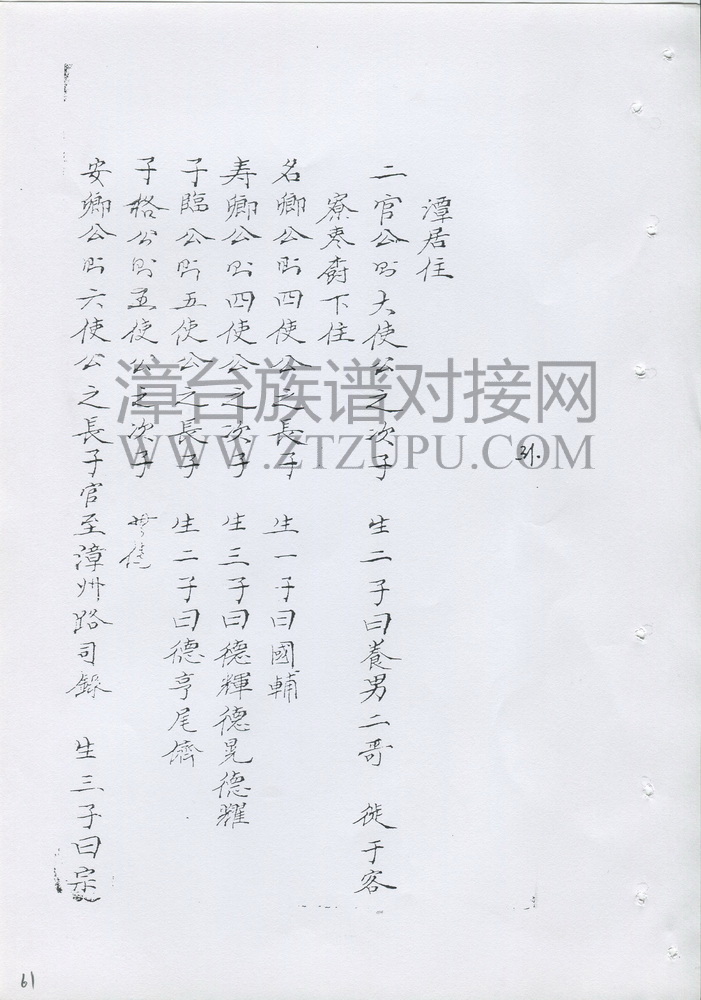 潭居住
二官公則大使公之次子 生二子曰養男二哥 徙于客
寮枣 下住
名卿公則四使公之長子 生一子曰國輔
寿卿公則四使公之次子 生三子曰德輝德晃德耀
子臨公則五使公之長子 生二子曰德亨尾儕
子格公則五使公之次子
安卿公則六使公之長子官至漳州路司錄 生三子曰宗
31.
漳台族谱对接网
WWW.ZTZUPU.COM
61